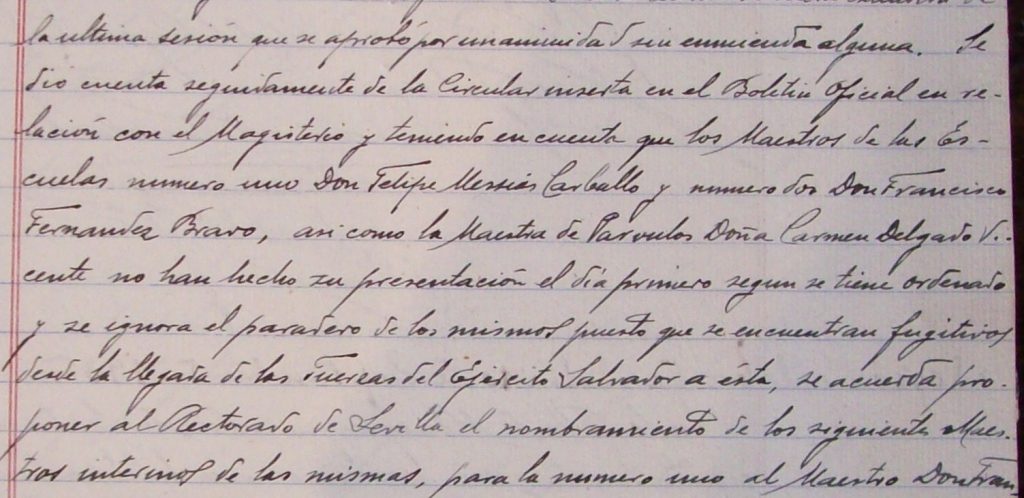 la ultima sesión que se aprobó por unanimidad sin enmienda alguna. Se
dio cuenta seguidamente de la Circular inserta en el Boletin Oficial en re-
lación con el Magisterio y teniendo en cuenta que los Maestros de las Es-
cuelas numero uno Don Felipe Messias Carballo y numero dos Don Francisco
Fernandez Bravo, asi como la Maestra de Parvulos Doña Carmen Delgado Vi-
cente no han hecho su presentación el dia primero segun se tiene ordenado
y se ignora el paradero de los mismos puesto que se encuentran fugitivos
desde la llegada de las Fuerzas del Ejército Salvador a ésta, se acuerda pro-
poner al Rectorado de Sevilla el nombramiento de los siguientes Maes-
tros interinos de las mismas, para la numero uno al Maestro Don Fran